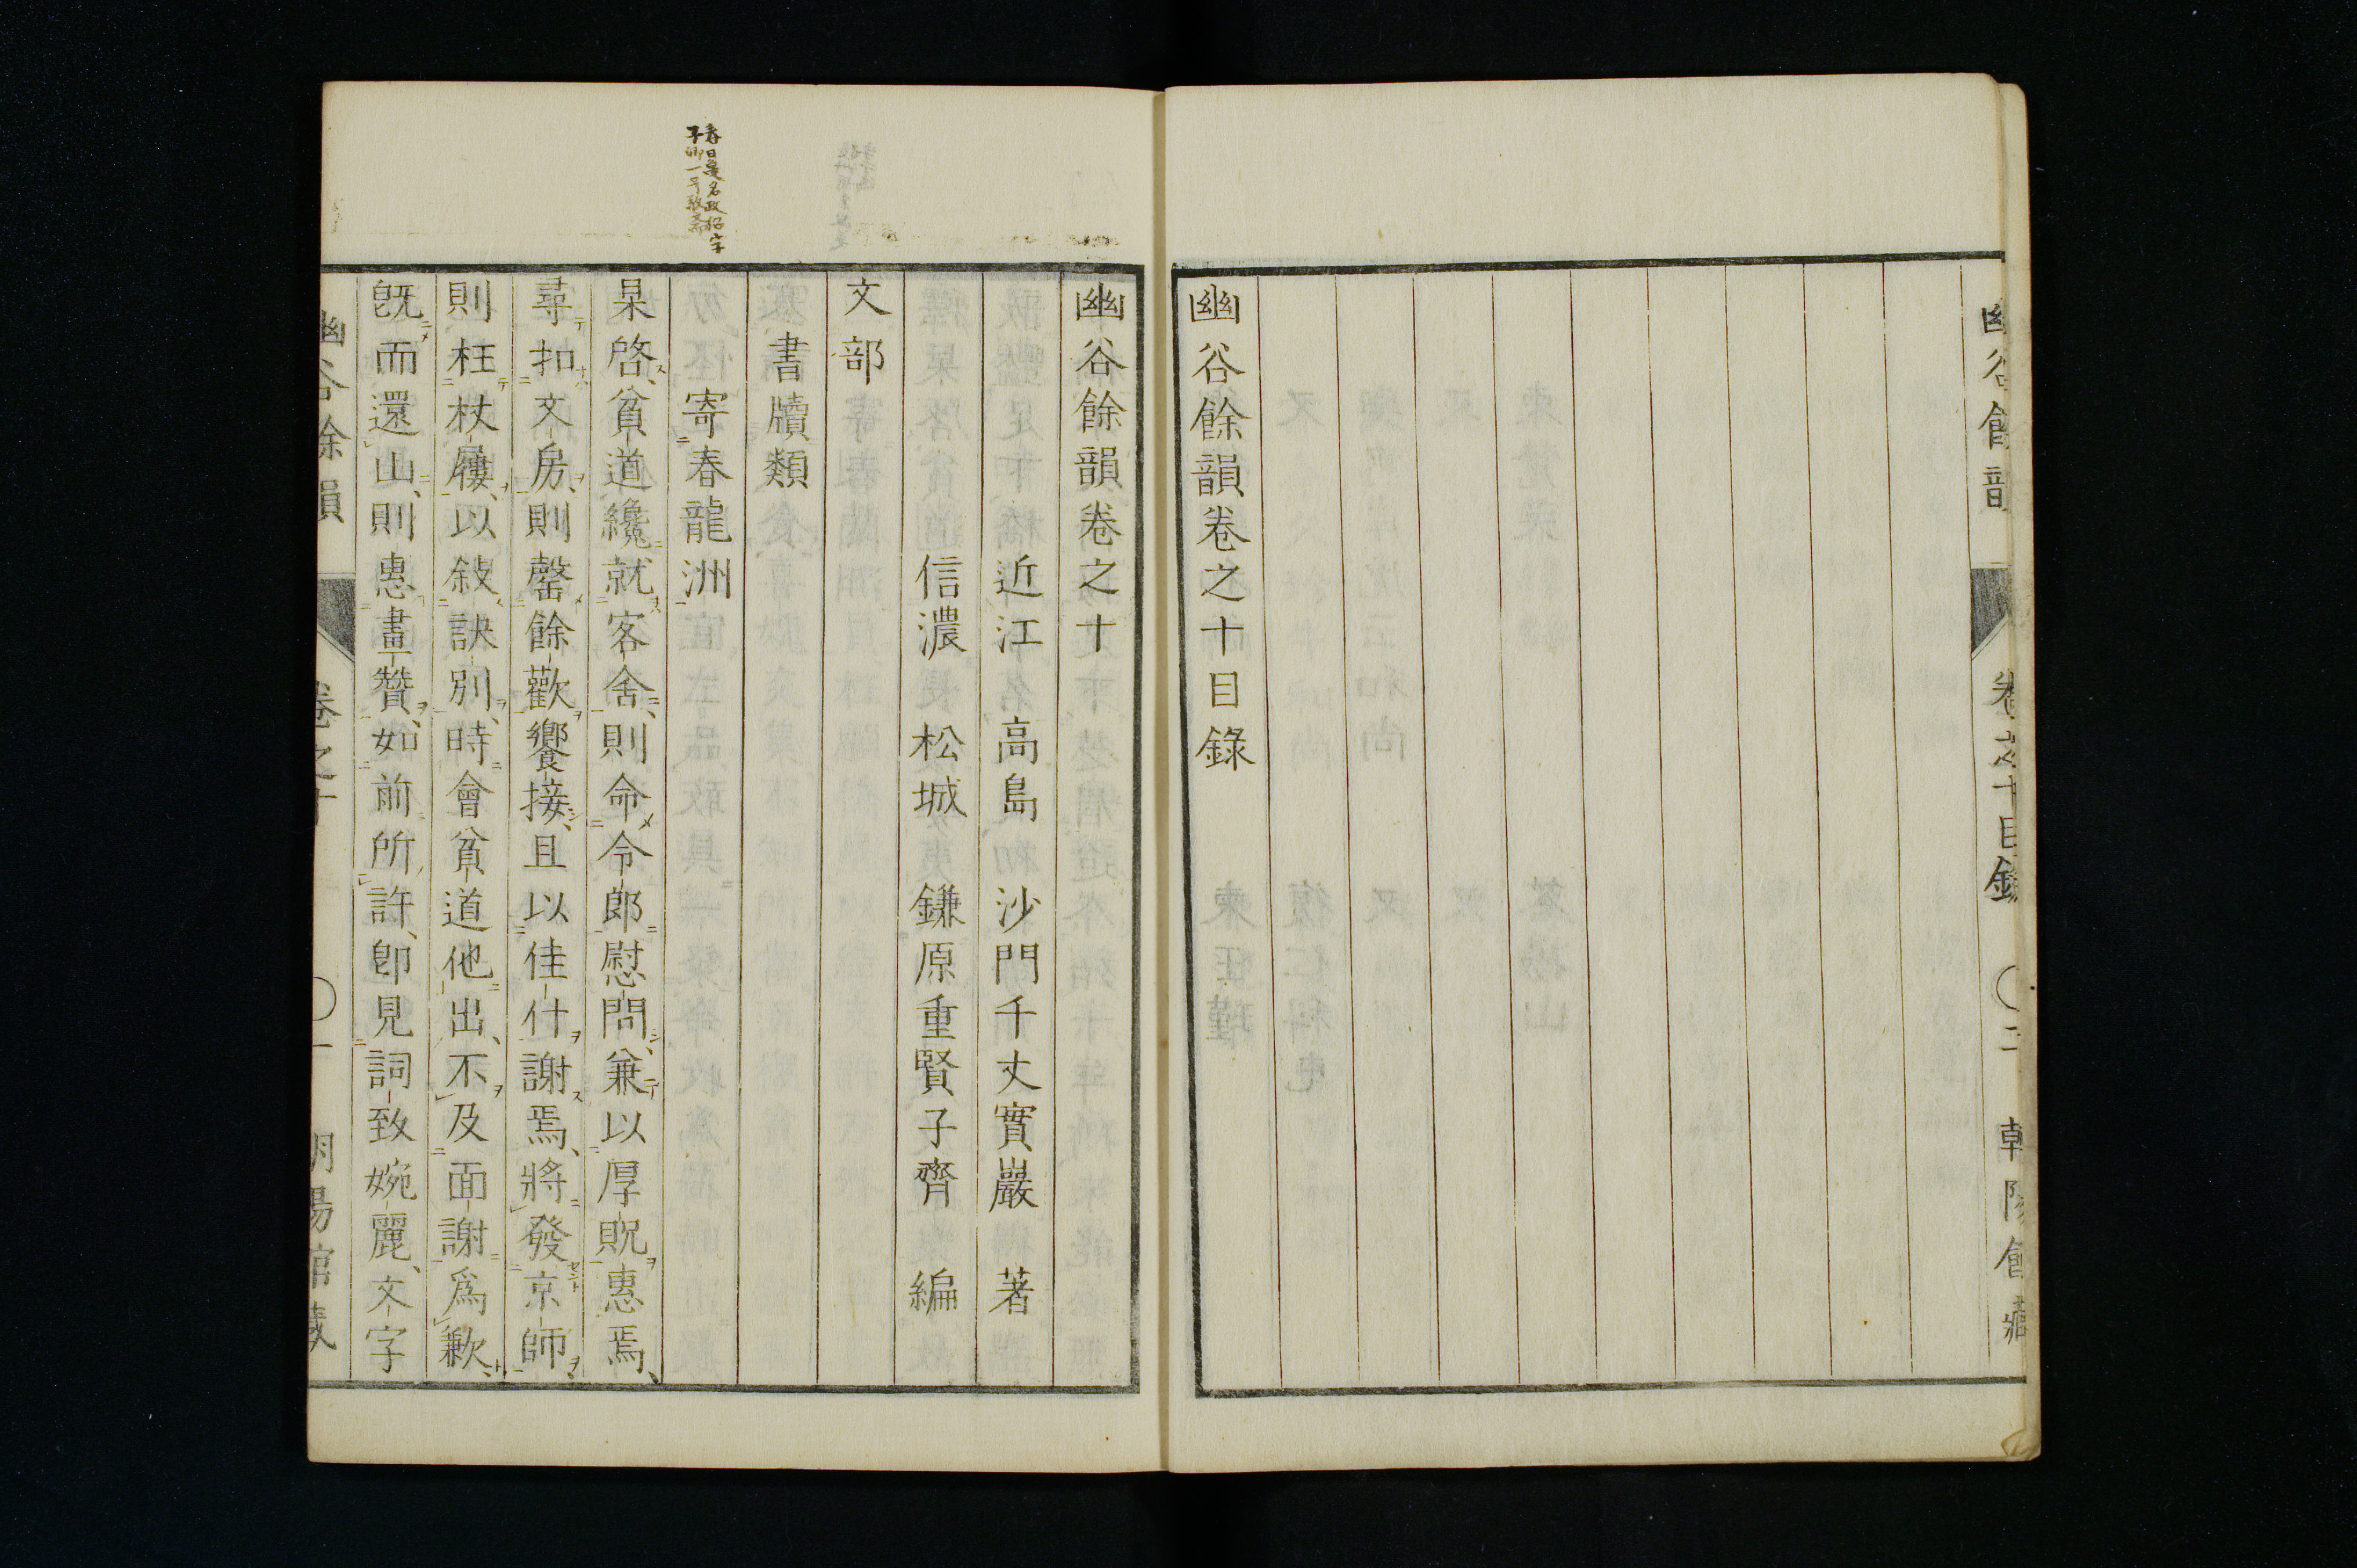 幽谷餘韻 卷之十目錄 〇二 朝陽館藏
幽谷餘韻卷之十目錄
幽谷餘韻卷之十
近江 高島 沙門千丈實巖 著
信濃 松城 鎌原重賢子齊 編
文部
書牘類
寄春龍洲
春日■名政招字
子卿一号敬斎
某啓、貧道纔就客舍、則命令郎慰問、兼以厚貺惠焉、
尋扣文房、則罄餘歡饗接、且以佳什謝焉、將發京師、
則枉杖屨、以敍訣別、時會貧道他出、不及面謝爲歉、
旣而還山、則惠畫贊、如前所許、卽見詞致婉麗、文字
幽谷餘韻 卷之十 〇一 朝陽館藏